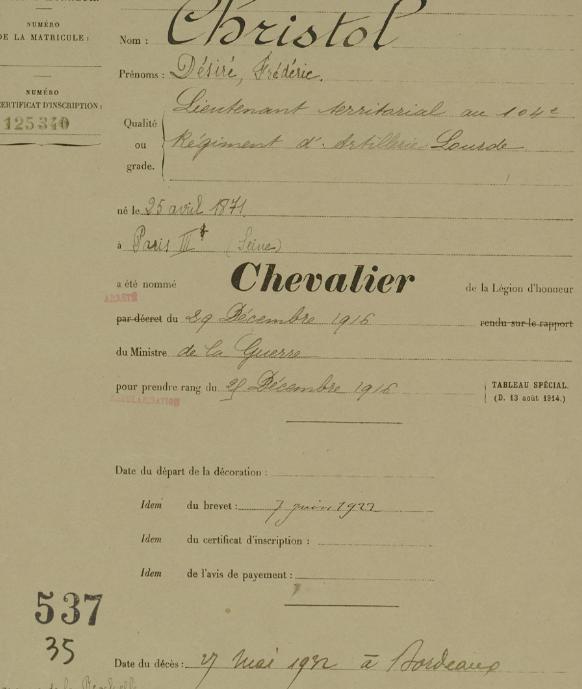 NUMÉRO
DE LA MATRICULE :
NUMÉRO
CERTIFICAT D'INSCRIPTION :
125340
Nom : Christol
Prénoms : Désiré, Frédéric.
Qualité ou grade. Lieutenant territorial au 104e
Régiment d'Artillerie Lourde
né le 25 avril 1871
à Paris (Seine)
a été nommé Chevalier de la Légion d'honneur
ARRÊTÉ
par décret du 29 Décembre 1916 rendu sur le rapport
du Ministre de la Guerre
pour prendre rang du Décembre 1916
TABLEAU SPÉCIAL.
(D. 13 août 1914.)
Date du départ de la décoration :
Idem du brevet : 7 juin 1922
Idem du certificat d'inscription :
Idem de l'avis de payement :
537
35
Date du décès : 27 Mai 1932 à Bordeaux